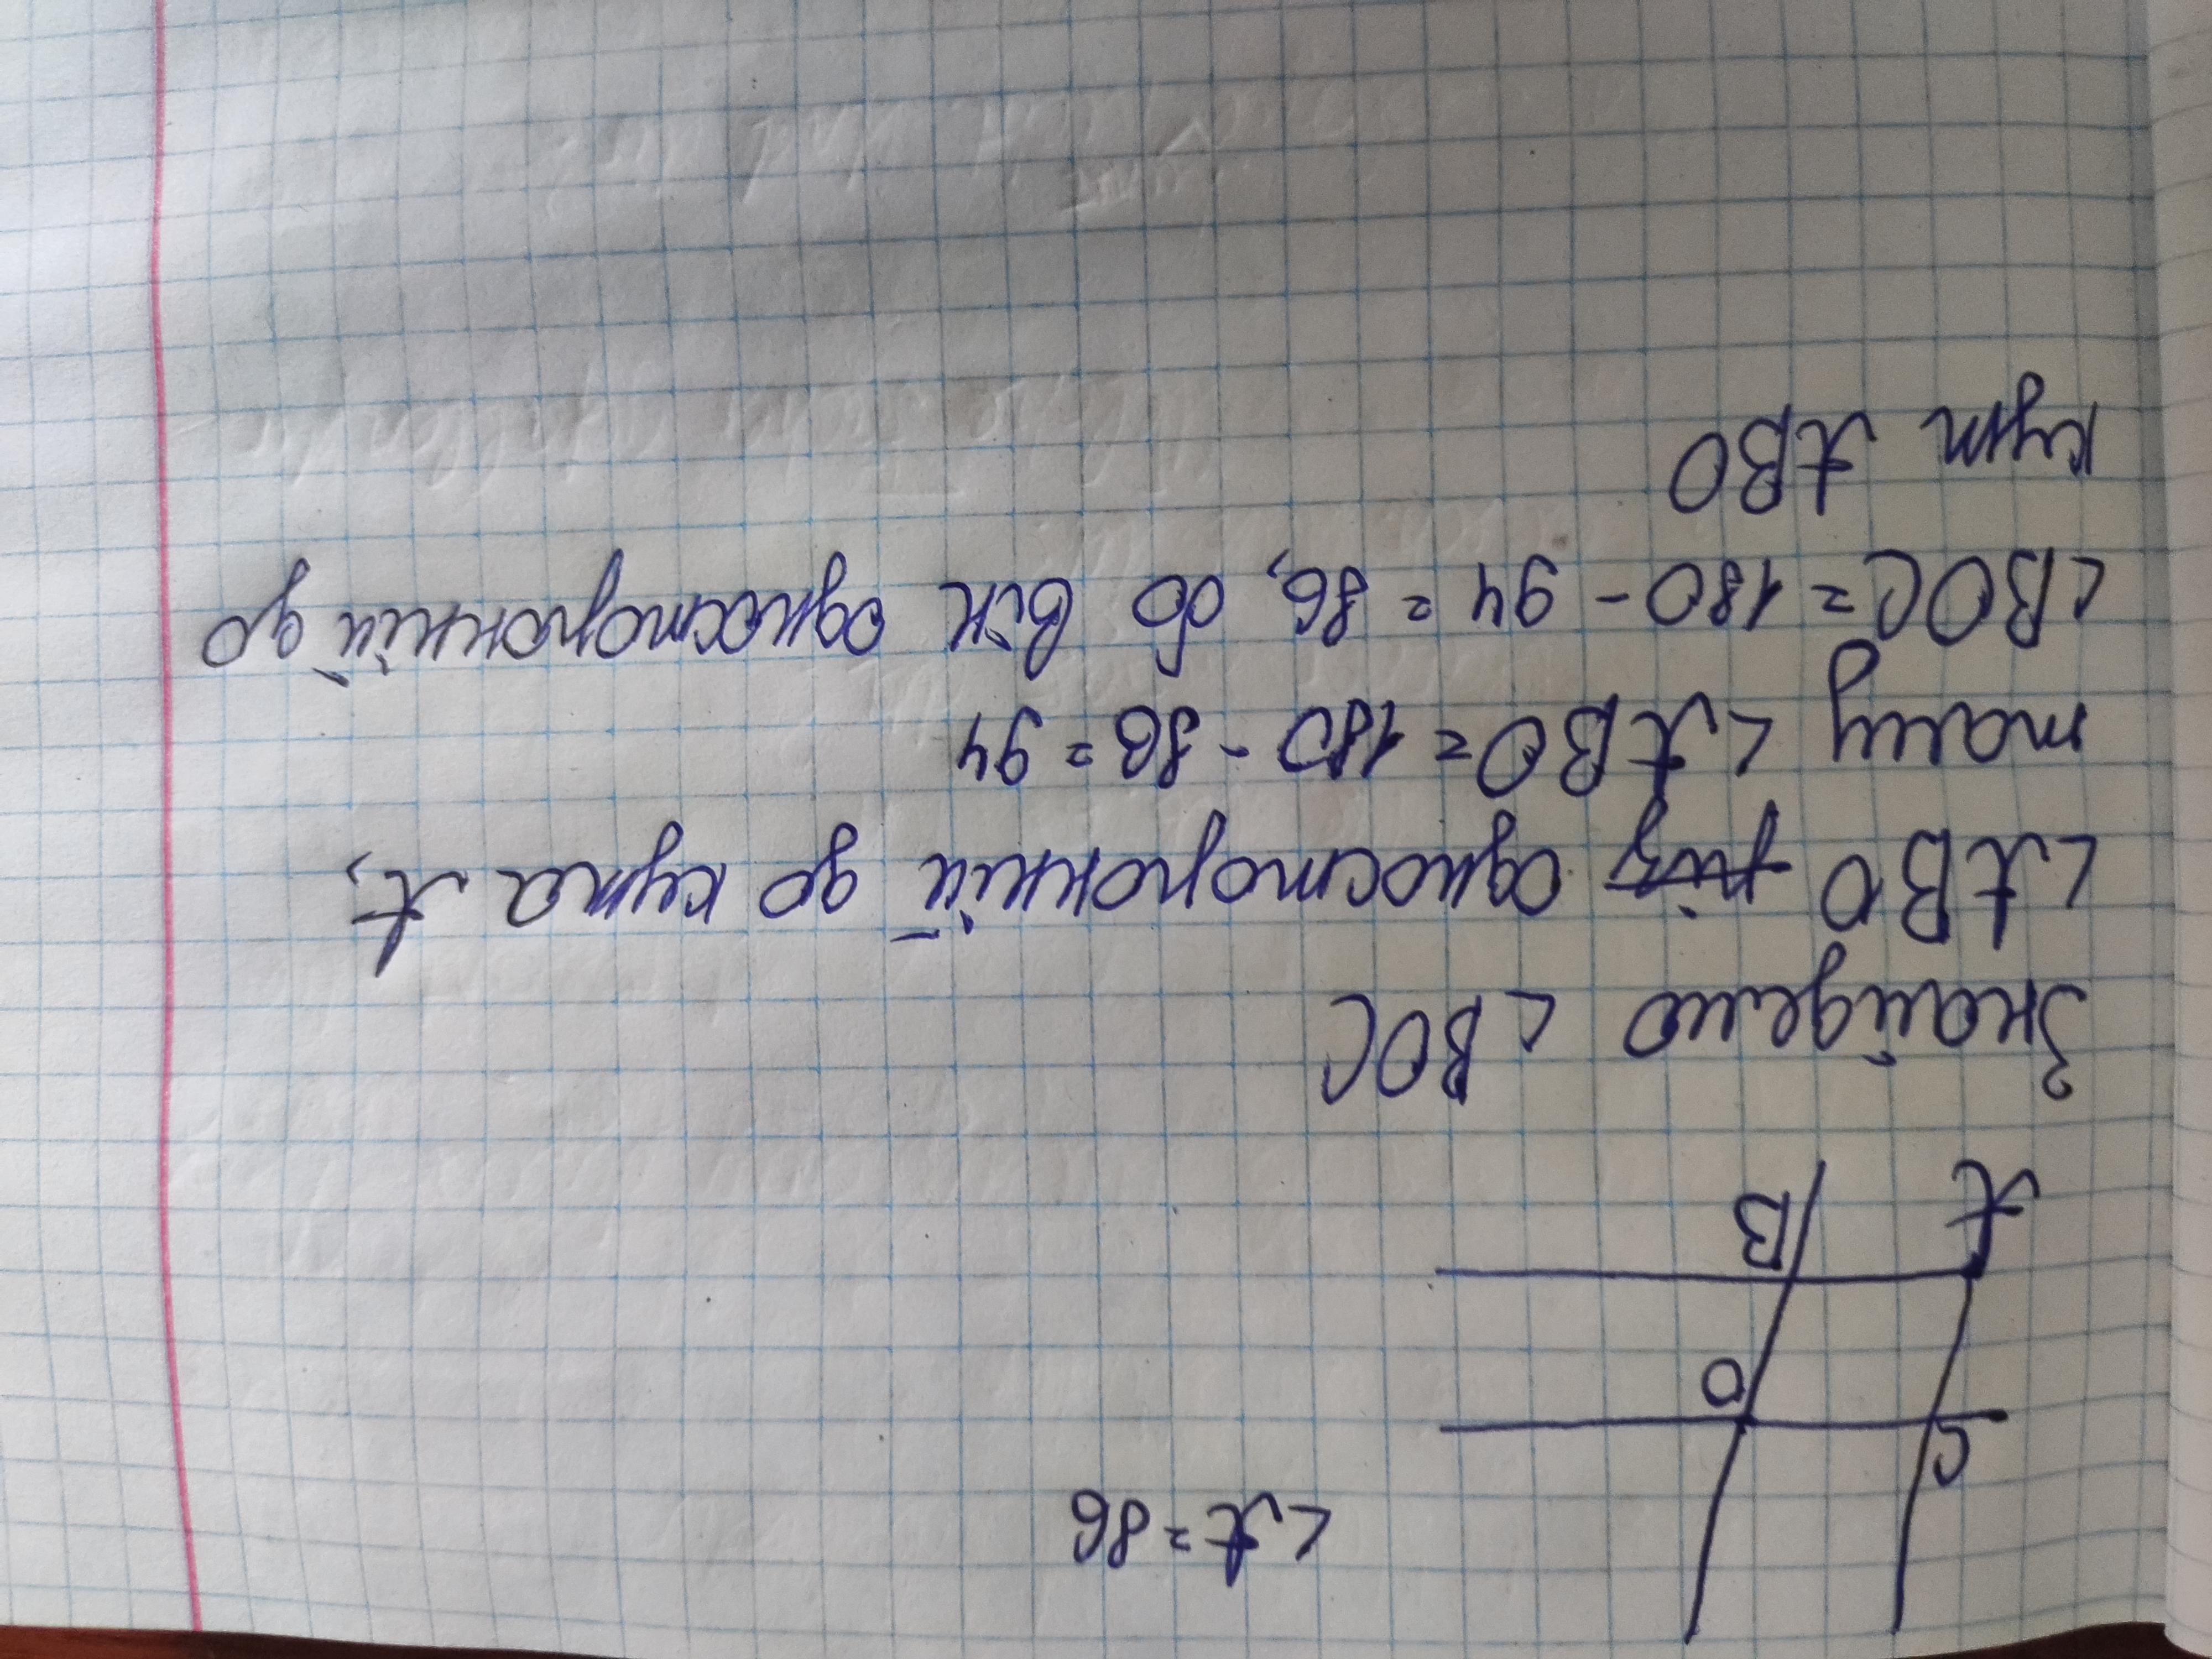 ∠A = 86
C
O
A
B
Знайдемо ∠BOC
∠ABO різ односторонній до кута A,
тому ∠ABO = 180 - 86 = 94
∠BOC = 180 - 94 = 86, бо він односторонній до
кут ABO